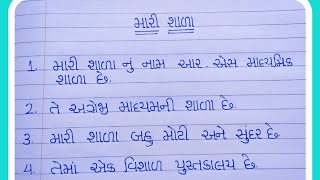 મારી શાળા
1. મારી શાળા નું નામ આર. એસ માધ્યમિક
શાળા છે.
2. તે અંગ્રેજી માધ્યમની શાળા છે.
3. મારી શાળા બહુ મોટી અને સુંદર છે.
4. તેમાં એક વિશાળ પુસ્તકાલય છે.